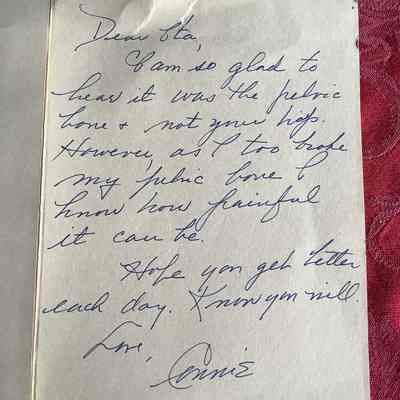 Dear Eta,
I am so glad to
hear it was the pelvic
bone & not your hips.
However, as I too broke
my pelvic bone I
know how painful
it can be.
Hope you get better
each day. Know you will.
Love,
Connie